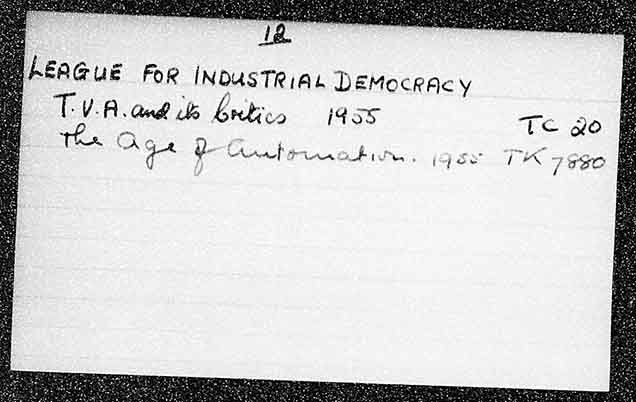 12
LEAGUE FOR INDUSTRIAL DEMOCRACY
T.V.A. and its Critics 1955 TC 20
The Age of Automation. 1955 TK 7880